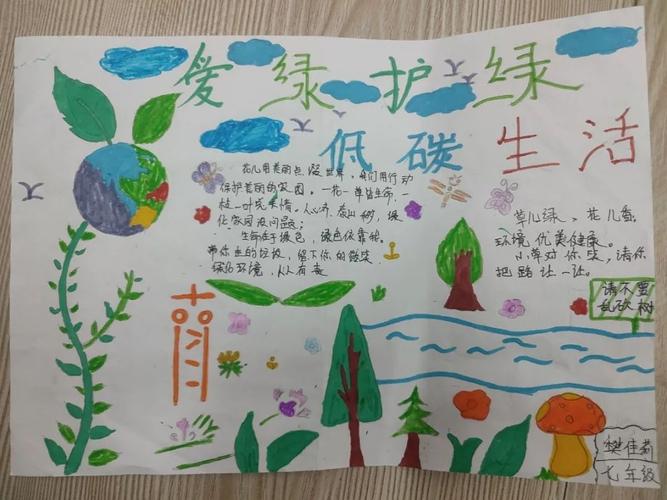 爱绿护绿
低碳生活
花儿用美丽点缀世界，我们用行动
保护美丽的家园。一花一草皆生命，一
枝一叶总关情。人心齐，泰山移，绿
化家园没问题；
生命在于绿色，绿色依靠我。
带你走的垃圾，留下你的微笑
绿的环境，人人有责
草儿绿，花儿香，
环境优美健康。
小草对你笑，请你
把路让一让。
请不要
乱砍树
樊佳莉
七年级